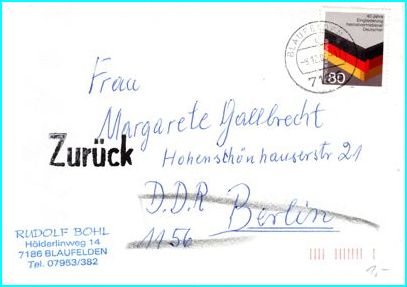 40 Jahre
Eingliederung
heimatvertriebener
Deutscher
80
BLAUFELDEN
Frau
Margarete Gallbrecht
Zurück
Hohenschönhauserstr 21
D.D.R Berlin
1156
RUDOLF BOHL
Hölderlinweg 14
7186 BLAUFELDEN
Tel. 07953/382
1,-